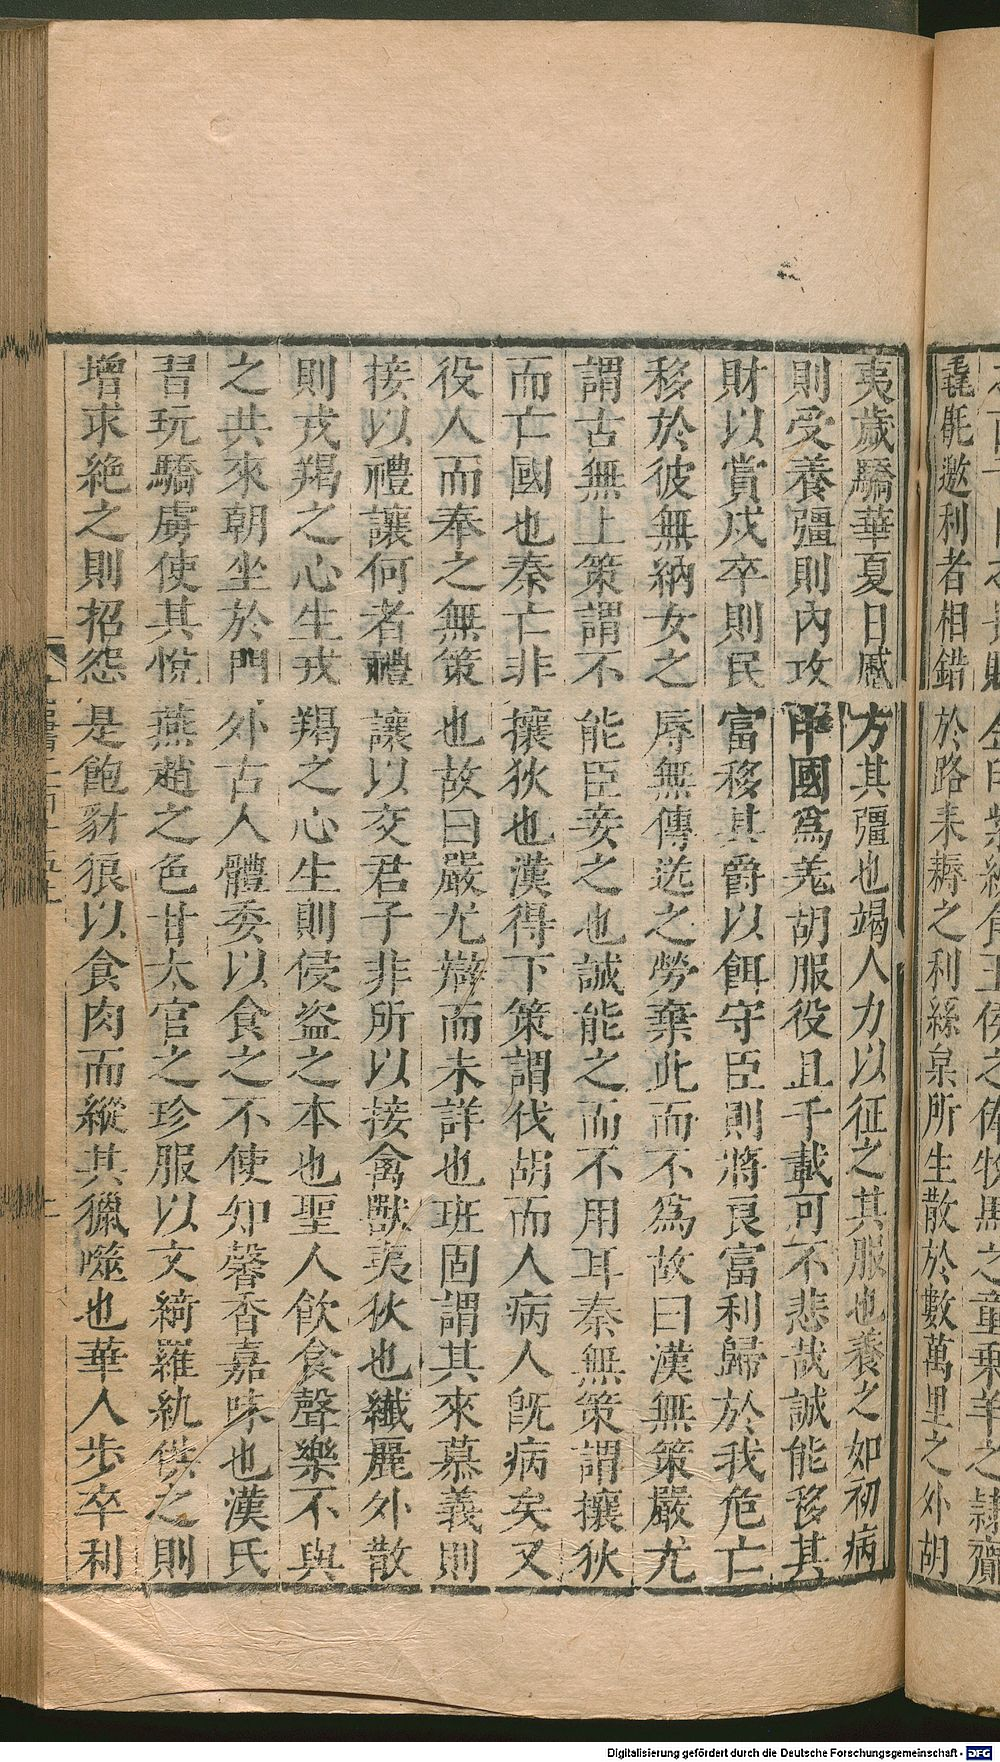 毳毼邀利者相錯於路耒耨之利絲枲所生散於數萬里之外胡
夷歲驕華夏日蹙方其彊也竭人力以征之其服也養之如初病
則受養彊則內攻中國爲羌胡服役且千載可不悲哉誠能移其
財以賞戍卒則民富移其爵以餌守臣則將良富利歸於我危亡
移於彼無納女之辱無傳送之勞棄此而不爲故曰漢無策嚴尤
謂古無上策謂不能臣妾之也誠能之而不用耳秦無策謂攘狄
而亡國也秦亡非攘狄也漢得下策謂伐胡而人病人旣病矣又
役人而奉之無策也故曰嚴尤辯而未詳也班固謂其來慕義則
接以禮讓何者禮讓以交君子非所以接禽獸夷狄也纖麗外散
則戎羯之心生戎羯之心生則侵盜之本也聖人飲食聲樂不與
之共來朝坐於門外古人體委以食之不使知馨香嘉味也漢氏
習玩驕虜使其悅燕趙之色甘太官之珍服以文綺羅紈供之則
增求絕之則招怨是飽豺狼以食肉而縱其獵噬也華人步卒利
Digitalisierung gefördert durch die Deutsche Forschungsgemeinschaft - DFG